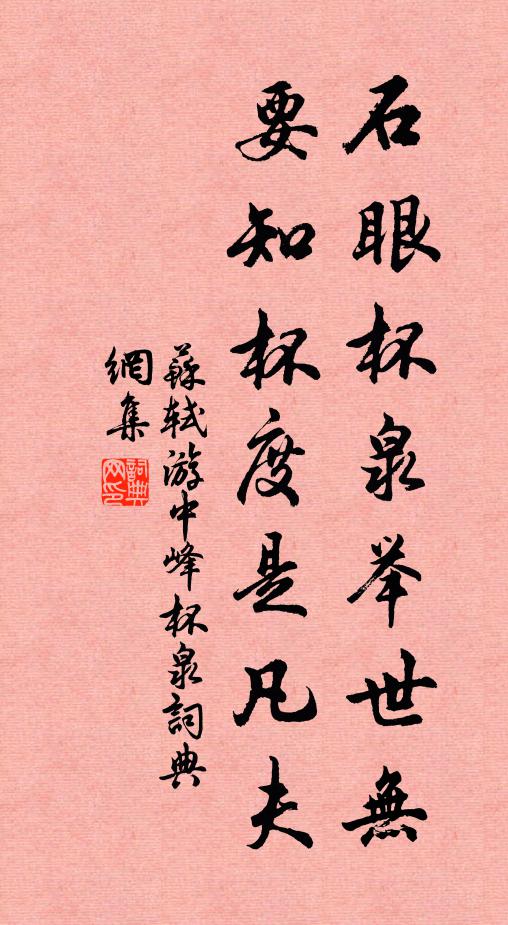 石眼杯泉举世無
要知杯度是凡夫
蘇轼游中峰杯泉詞典
網集
詞典网印